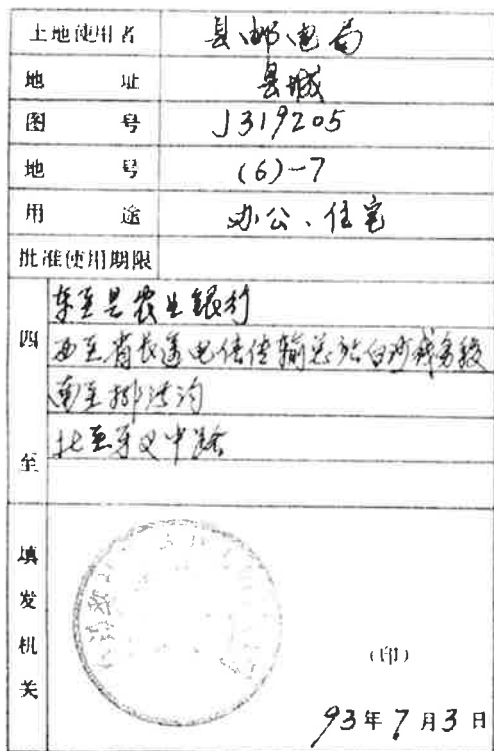 土地使用者 县邮电局
地 址 县城
图 号 J319205
地 号 (6)-7
用 途 办公、住宅
批准使用期限
四至
东至县农业银行
西至省长途电信传输总站白河线务段
南至排洪沟
北至
中路
填发机关
(印)
93年7月3日